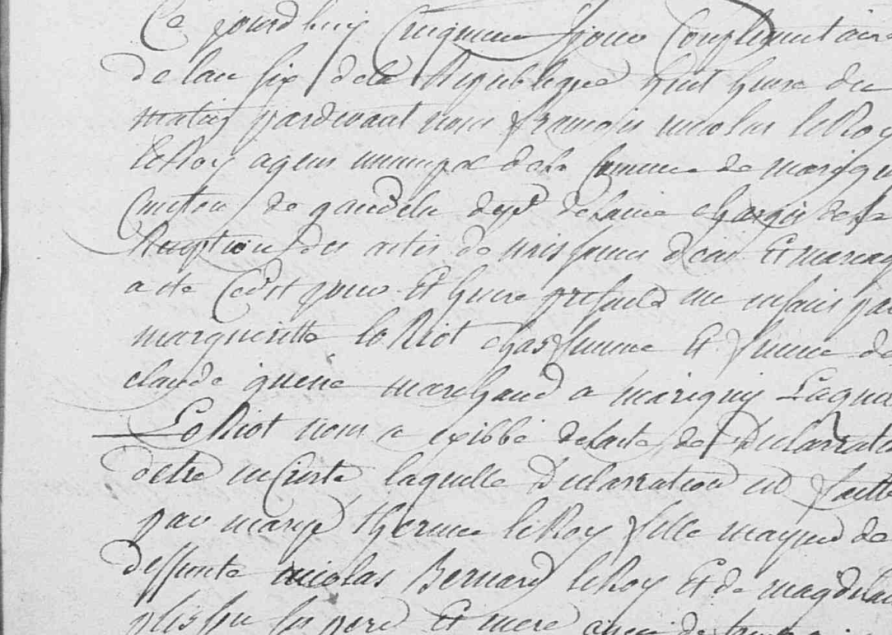 Ce jourdhuy Cinquieme jour Complementaire
de lan six de la Republique huit heure du
matin pardevant nous francois nicolas leRoy
leRoy agent municipal de la Commune de marigny
Canton de gandelu dept de laine chargés de la
Reception des actes de naissance deces Et mariag
a été Cedit jour Et heure presenté un enfant par
margueritte loRiot sage femme Et femme de
claude marchand a marigny Laquel
LoRiot nous a exibbé de lacte de Declarratio
detre enCeinte laquelle Declarration est faitte
par marye therese leRoy fille mayeure de
deffunte nicolas Bernard leRoy Et de magdelai
ses pere Et mere agée de